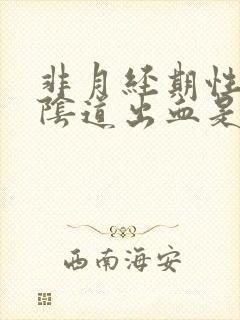 非月经期性
陰道出血是
西南海安